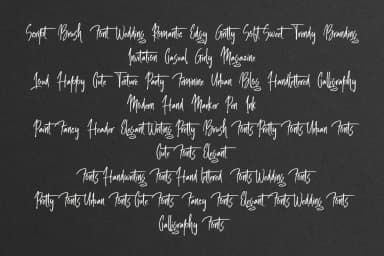 Script Brush Font Wedding Romantic Edgy Gritty Soft Sweet Trendy Branding
Invitation Casual Girly Magazine
Loud Happy Cute Texture Party Feminine Urban Blog Handlettered Calligraphy
Modern Hand Marker Pen Ink
Paint Fancy Header Elegant Writing Pretty Brush Fonts Pretty Fonts Urban Fonts
Cute Fonts Elegant
Fonts Handwriting Fonts Hand lettered Fonts Wedding Fonts
Pretty Fonts Urban Fonts Cute Fonts Fancy Fonts Elegant Fonts Wedding Fonts
Calligraphy Fonts